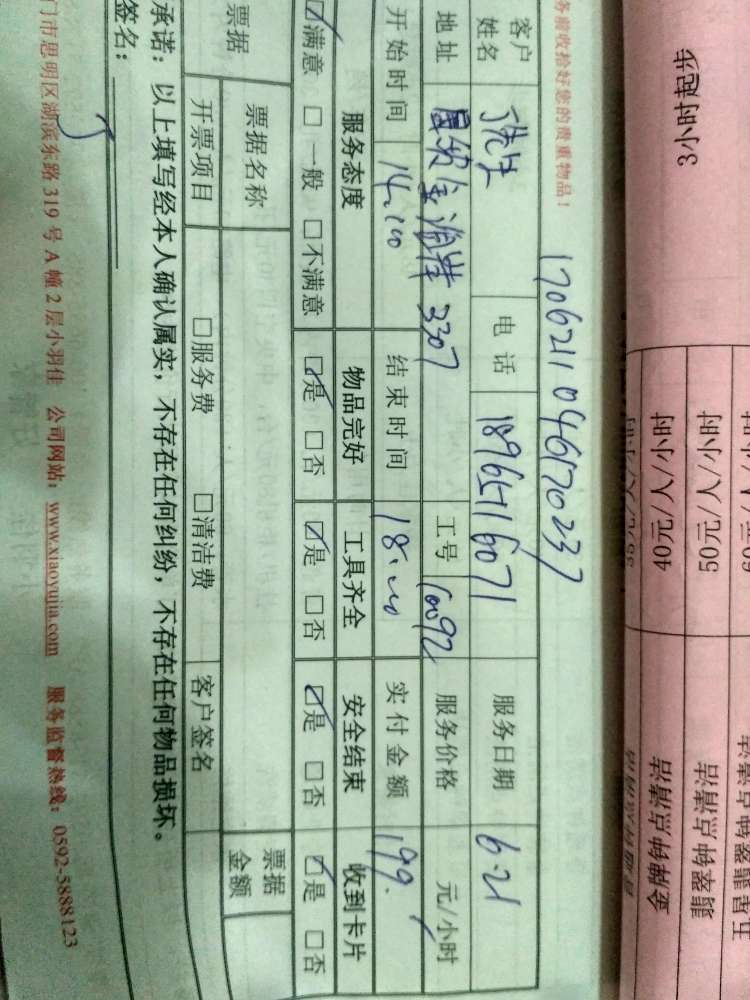 务前收拾好您的贵重物品!
1706211046170237
客户姓名 电话 18965116071 服务日期 6.21
地址 3307 工号 10092 服务价格 元/小时
开始时间 14:00 结束时间 18:00 实付金额 199.
服务态度 物品完好 工具齐全 安全结束 收到卡片
☑满意 □一般 □不满意 ☑是 □否 ☑是 □否 ☑是 □否 ☑是 □否
票据 票据名称 票据金额
开票项目 □服务费 □清洁费 客户签名
承诺：以上填写经本人确认属实，不存在任何纠纷，不存在任何物品损坏。
签名：
门市思明区湖滨东路319号A幢2层小羽佳 公司网站：www.xiaoyujia.com 服务监督热线：0592-5888123
3小时起步
40元/人/小时
50元/人/小时
金牌钟点清洁